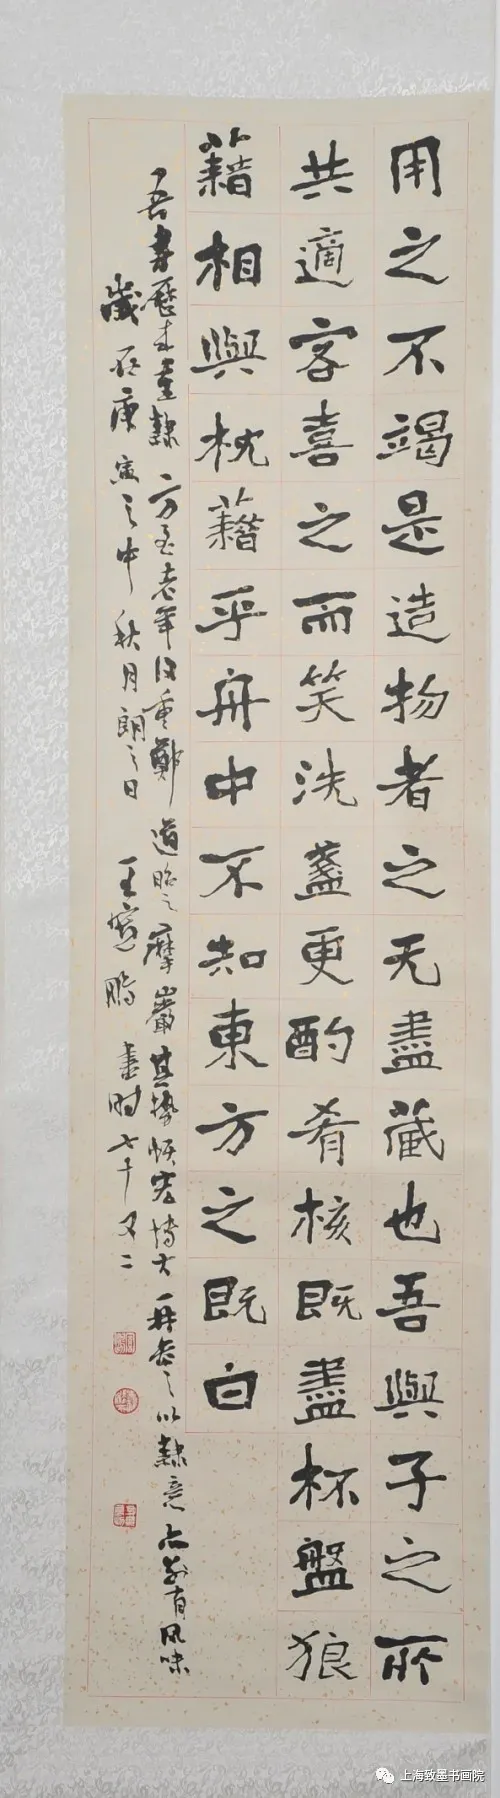 用之不竭是造物者之无盡藏也吾與子之所
共適客喜之而笑洗盞更酌肴核既盡杯盤狼
藉相與枕藉乎舟中不知東方之既白
吾書歷来重隸方至老年後重鄭道昭之摩巖其勢恢宏博大再参之以隸意点劃有風味
歲在庚寅之中秋月朗之日王寬鵬書時七十又二
上海致墨书画院